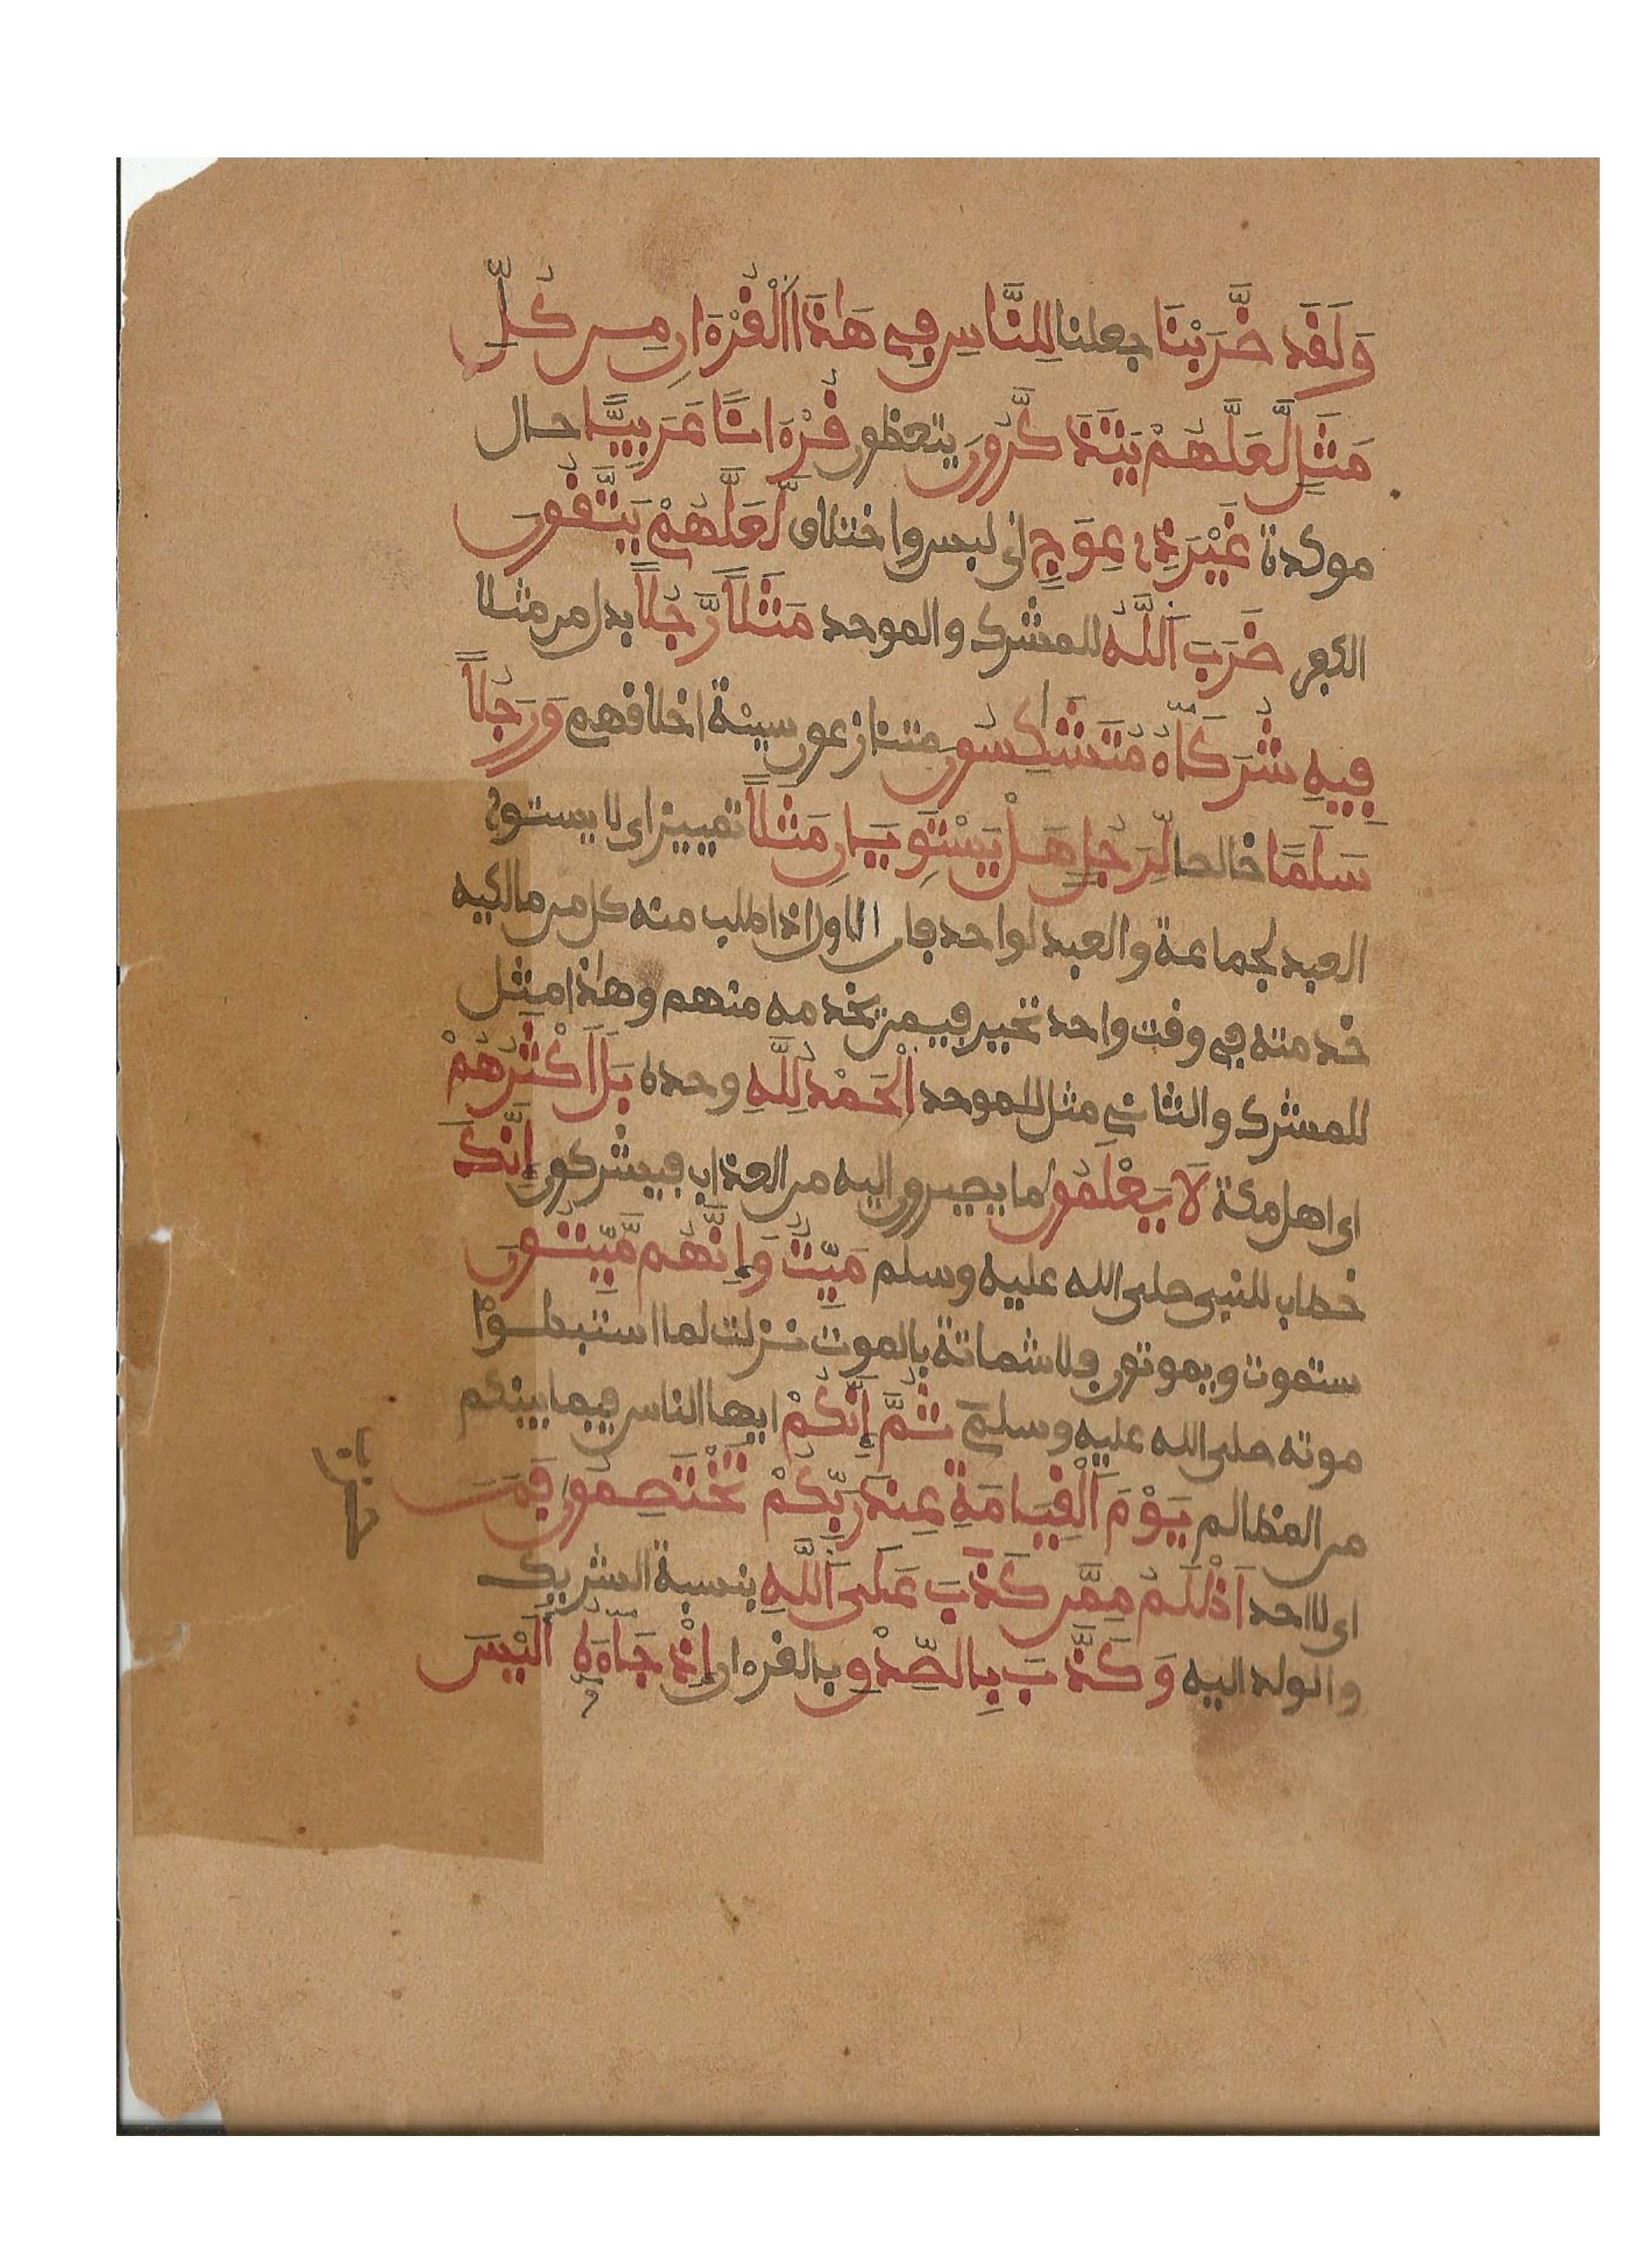 وَلَقَد ضَّرَبْنَا جعلنا لِلنَّاسِ فِي هَٰذَا اَ۬لْقُرْءَانِ مِن كُلِّ
مَثَلٖ لَّعَلَّهُمْ يَتَذَكَّرُونَ يتعظون قُرْءَاناً عَرَبِيّاً حال
موكدة غَيْرَ ذِے عِوَجٖ اى لبس واختلاف لَّعَلَّهُمْ يَتَّقُونَ
الكفر ضَرَبَ اَ۬للَّهُ للمشرك والموحد مَثَلاً رَّجُلاً بدل من مثلا
فِيهِ شُرَكَآءُ مُتَشَٰكِسُونَ متنازعون سيئة اخلاقهم وَرَجُلاً
سَلَماً خالصا لِّرَجُلٍ هَلْ يَسْتَوِيَانِ مَثَلاً تمييز اى لا يستوے
العبد لجماعة والعبد لواحد فان الاول اذا طلب منه كل من مالكيه
خدمته في وقت واحد تحير فيمن يخدمه منهم وهٰذا مثل
للمشرك والثاني مثل للموحد اِ۬لْحَمْدُ لِلَّهِ وحده بَلَ اَكْثَرُهُمْ
اى اهل مكة لَا يَعْلَمُونَ ما يصيرون اليه من العذاب فيشركون إِنَّكَ
خطاب للنبى صلى الله عليه وسلم مَيِّتٌ وَإِنَّهُم مَّيِّتُونَ
ستموت ويموتون فلا شماتة بالموت نزلت لما استبطـوْا
موته صلى الله عليه وسلم ثُمَّ إِنَّكُمْ ايها الناس فيما بينكم
من المظالم يَوْمَ اَ۬لْقِيَامَةِ عِندَ رَبِّكُمْ تَخْتَصِمُونَ فَمَنَ
اى لا احد اَظْلَمُ مِمَّن كَذَبَ عَلَى اَ۬للَّهِ بنسبة الشريك
والولد اليه وَكَذَّبَ بِالصِّدْقِ بالقرءان إِذْ جَآءَهُ أَلَيْسَ